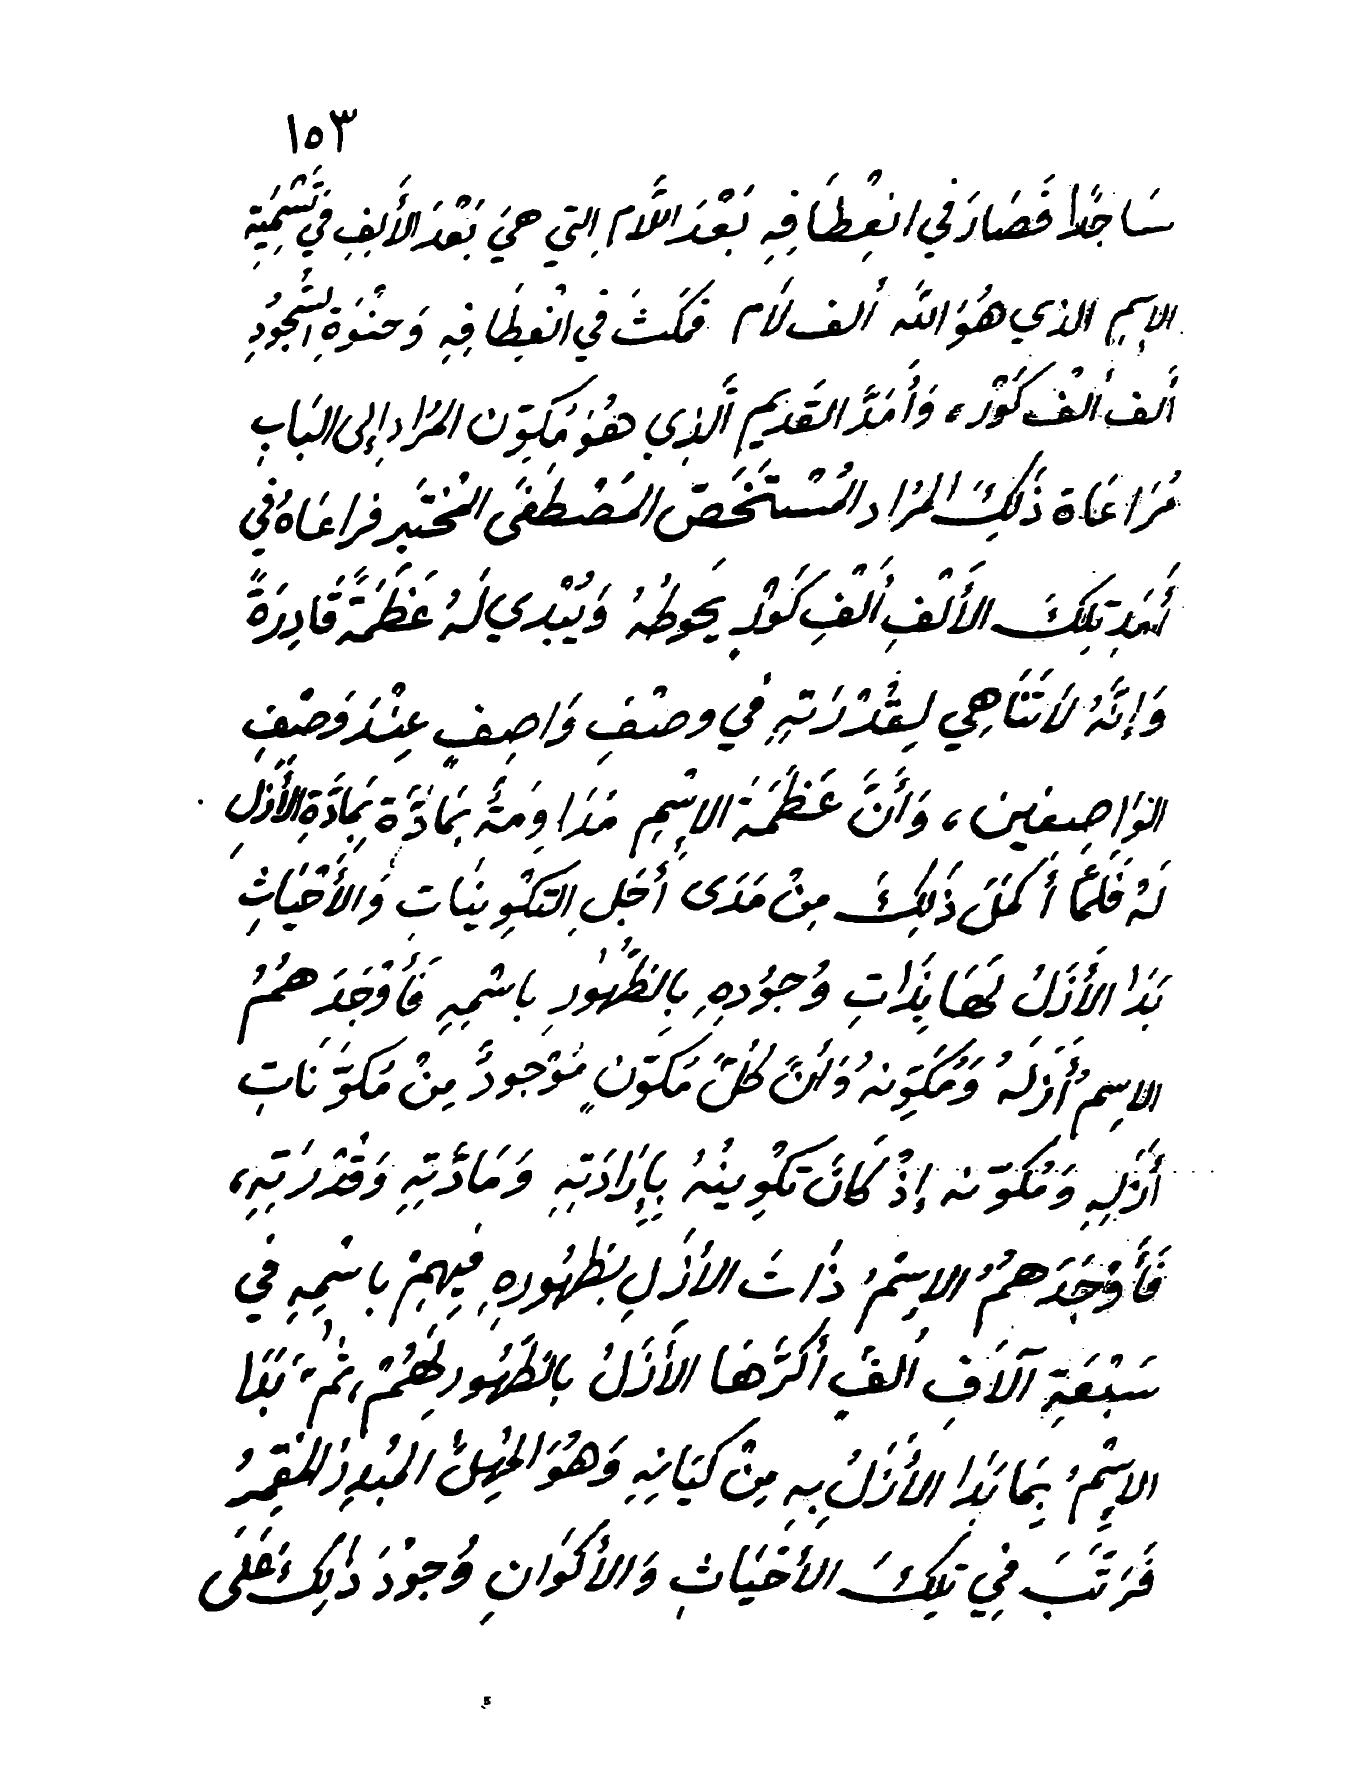 ١٥٣
سَاجِدًا فَصَارَ في انعِطَافِهِ بَعْدَ اللَّام ِالتي هيَ بَعْدَ الأَلِفِ فيِ تَسْمِيَةِ
الإسمِ الذي هُوَ اللّه أَلف لَام فمكَثَ فيِ انْعِطَافِهِ وَحَنْوَةِ السُّجُودِ
أَلف أَلف كَوْر، وَأَمَدَّ القَديمِ الَّذِي هُوَ مُكَوِّن المُرَادِ إلى البَابِ
مُرَاعَاة ذَلِكَ المُرَاد المُسْتَخَصّ المَصْطَفَى المُخْتَبر فراعَاهُ في
أَمَدِ تِلكَ الأَلْفِ أَلْفِ كَوْرٍ يحُوطُهُ وَيُبْدي لَهُ عَظَمَةً قَادِرَةً
وَإِنَّهُ لَا تَنَاهِي لِقُدْرَتِهِ في وصْفِ وَاصِفٍ عِنْدَ وَصْفِ
الوَاصِفين، وَأَنَّ عَظَمَةَ الإسْمِ مَدَاوِمَةٌ بمَادَّة بِمَادَّةِ الأَزَلِ
لَهُ فَلَمَّا أَكمَلَ ذَلِكَ مِنْ مَدَى أَجَلِ التكْوِينَاتِ وَالأَحْيَاثِ
بَدَا الأَزَلُ لَهَا بِذَاتِ وُجُودِهِ بِالظُّهُورِ باسْمِهِ فَأَوْجَدَهُمُ
الإسمُ أَزَلَهُ وَمُكَوِّنهُ وَأنَّ كُلَّ مَكَوّنٍ مَوْجودٌ مِنْ مَكوَّنَاتِ
أَزَلِهِ وَمُكوّنه إذْ كَانَ تكْوِينُهُ بِإِرَادَتِهِ وَمَادَّتِهِ وَقُدْرَتِهِ،
فَأَوْجَدَهُمُ الإسْمُ ذَاتَ الأزَلِ بظهُورِهِ فيهِمْ باسْمِهِ في
سَبْعَةِ آلَافِ أَلفٍ أكَرَّهَا الأَزَلُ بالظُّهُور لَهُمْ، ثُمَّ بَدَا
الإسْمُ بِمَا بَدَا الأَزَلُ بِهِ مِنْ كيَانِهِ وَهُوَ المُهِلُّ المُبدِرُ المُقْمِرُ
فَرَتَّبَ فيِ تِلكَ الأَحْيَاثِ وَالأَكوَانِ وُجوْدَ ذَلِكَ عَلَى